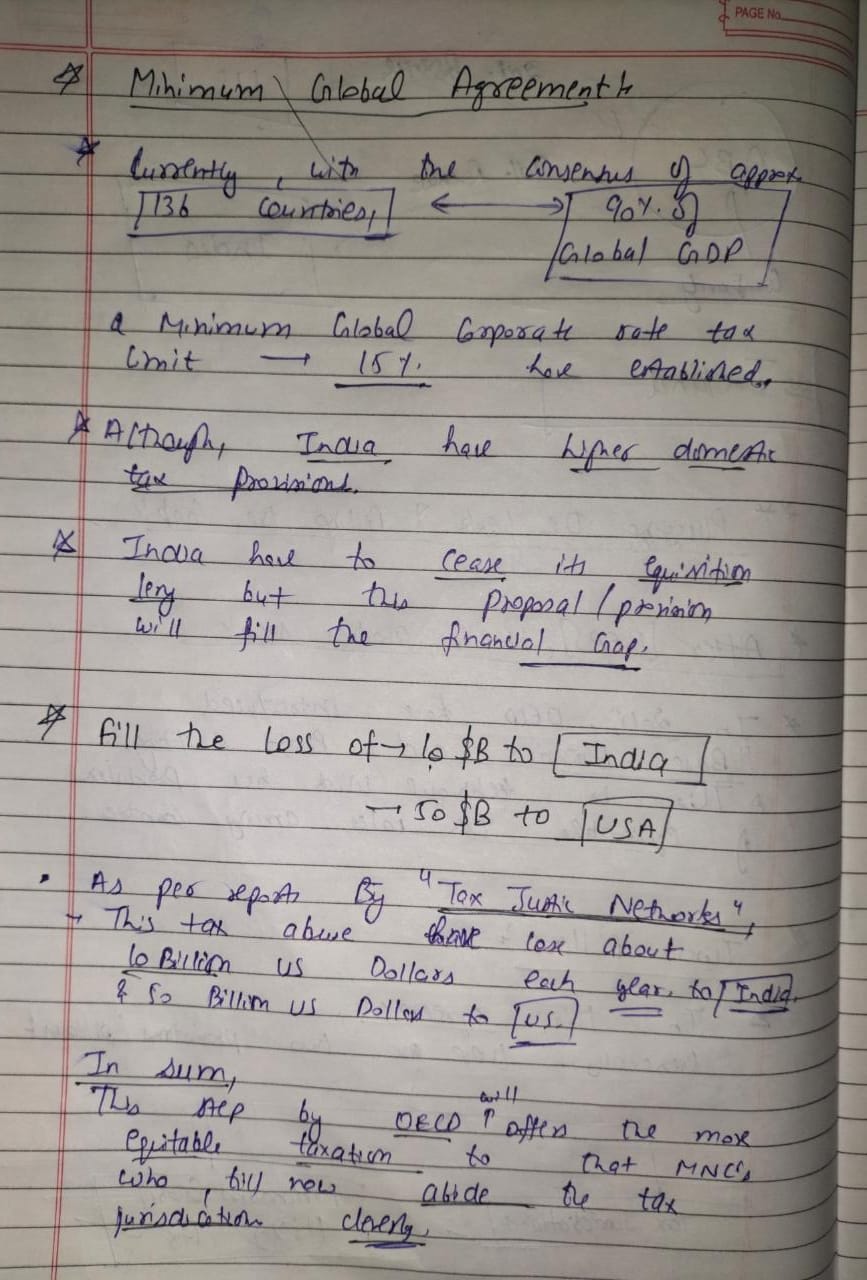 PAGE No.
Minimum Global Agreement
Currently, with the consensus of approx
136 countries, ↔ 90% of
Global GDP
a Minimum Global Corporate rate tax
limit → 15% have established.
Although, India have higher domestic
tax provisions.
India have to cease its
levy but this proposal / provision
will fill the financial Gap.
fill the loss of → 10 $B to India
→ 50 $B to USA
As per reports By "Tax Justic Networks",
→ This tax abuse lose about
10 Billion US Dollars each year to India.
& 50 Billion US Dollars to US.
In sum,
will
This step by OECD ↑ offers the more
equitable taxation to that MNC's
who, till now abide the tax
jurisdication cleverly.